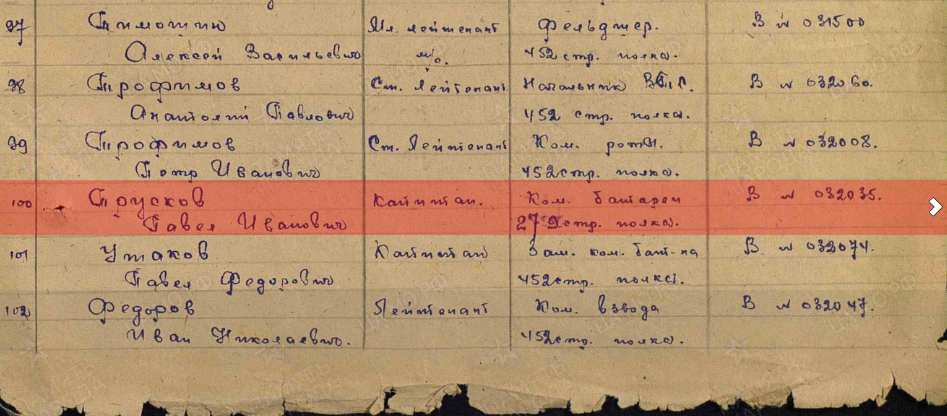 97 Тимошин Мл. лейтенант Фельдшер. В № 031500
Алексей Васильевич м/с. 452 стр. полка.
98 Трофимов Ст. Лейтенант Начальник В № 032060.
Анатолий Павлович 452 стр. полка.
99 Трофимов Ст. Лейтенант Ком. роты. В № 032008.
Петр Иванович 452 стр. полка.
100 Трусков Капитан. Ком. батареи В № 032035.
Павел Иванович стр. полка.
101 Ушаков Капитан Зам. ком. бат-на В № 032074.
Павел Федорович 452 стр. полка.
102 Федоров Лейтенант Ком. взвода В № 032047.
Иван Николаевич. 452 стр. полка.